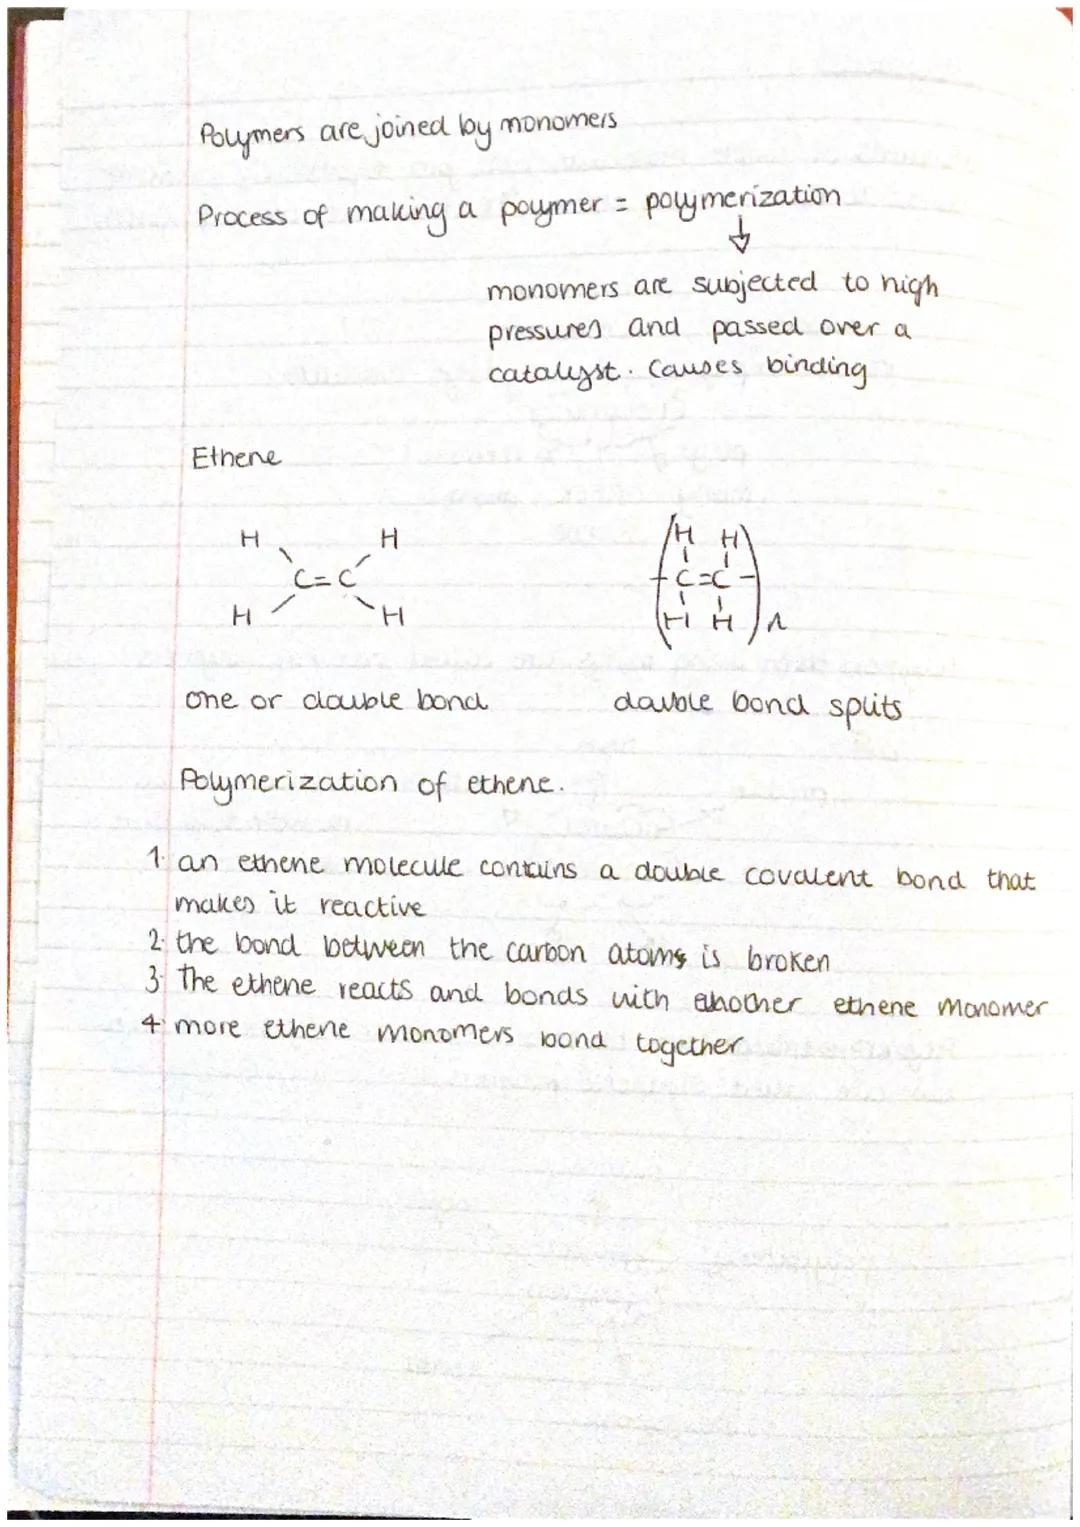 Polymers are joined by monomers
Process of making a polymer = polymerization
↓
monomers are subjected to high
pressures and passed over a
catalyst. Causes binding
Ethene
H H H H
C=C C=C
H H H H n
one or double bond double bond splits
Polymerization of ethene.
1. an ethene molecule contains a double covalent bond that
makes it reactive
2. the bond between the carbon atoms is broken
3. The ethene reacts and bonds with another ethene monomer
4. more ethene monomers bond together